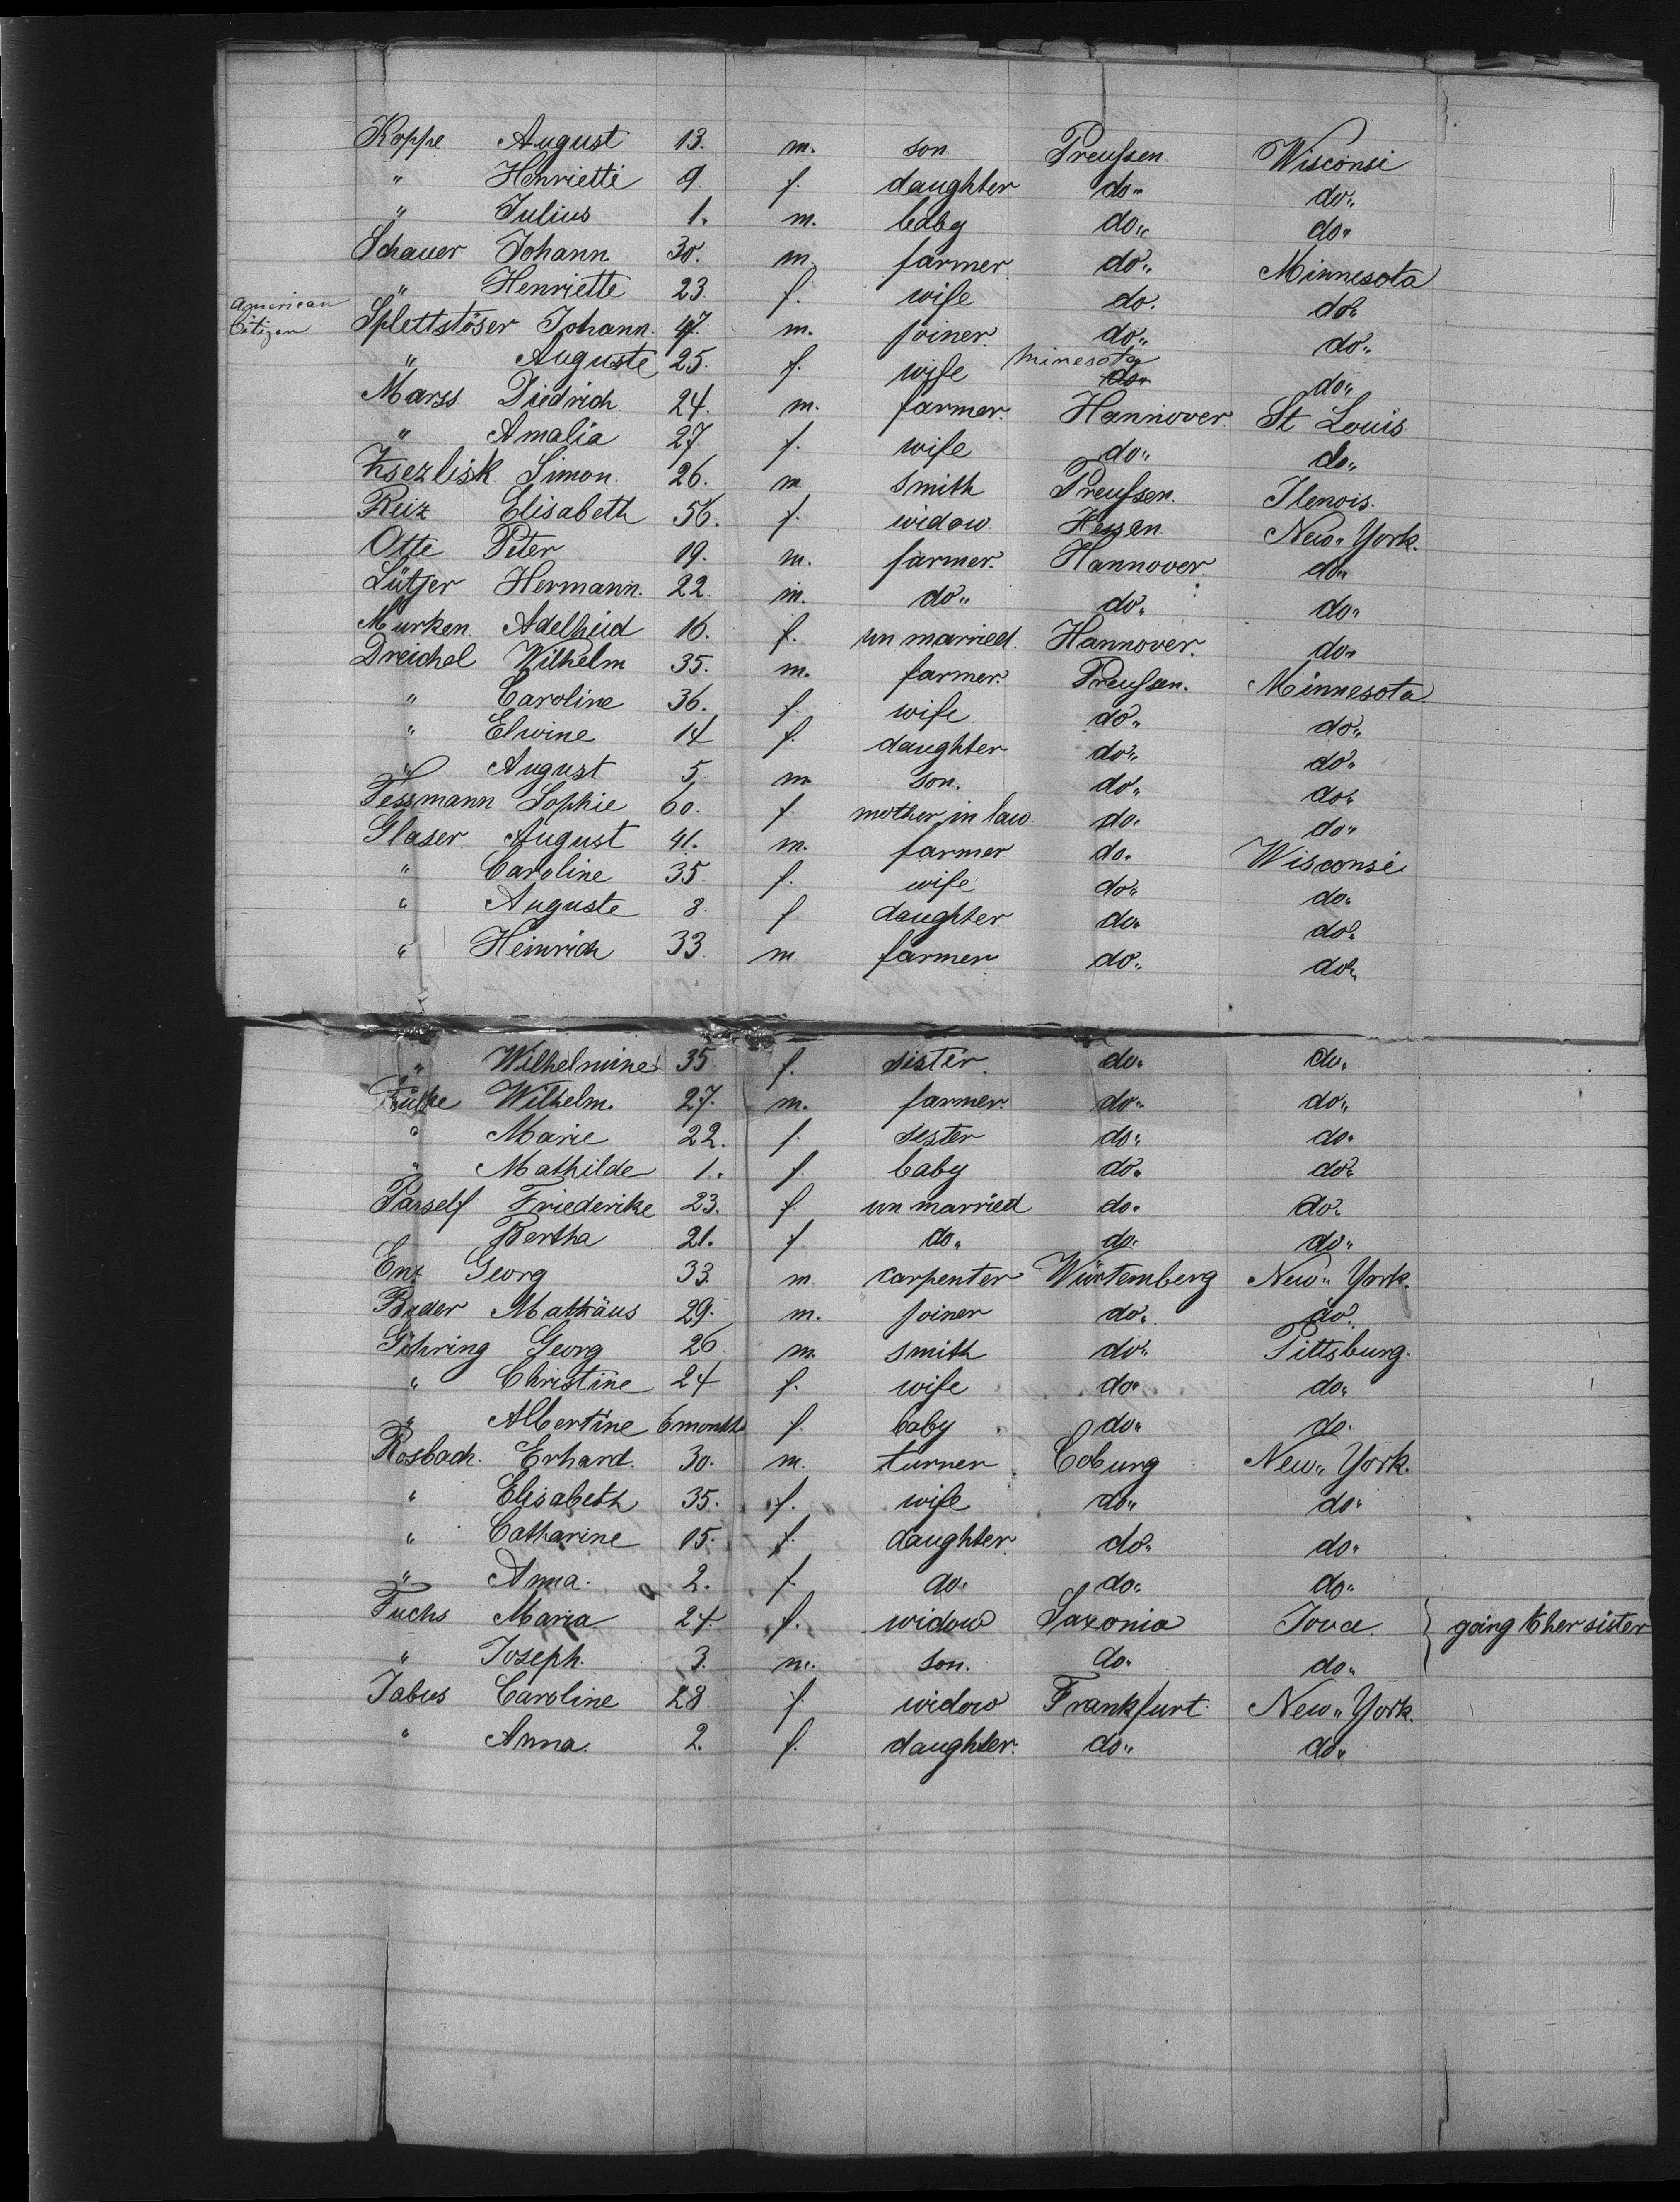 Koppe August 13. m. son Preußen. Wisconsi
" Henriette 9. f. daughter do" do"
" Julius 1. m. baby do" do"
Schauer Johann 30. m. farmer do" Minnesota
" Henriette 23. f. wife do. do"
American Citizen Splettstöser Johann. 47. m. joiner. do" do"
" Auguste 25. f. wife Minesota do" do"
Marss Diedrich 24. m. farmer. Hannover. St Louis.
" Amalia 27. f. wife do" do"
Simon. 26. m smith Preußen. Ilenois.
Reiz Elisabeth 56. f. widow Hessen. New" York.
Otte Peter 19. m. farmer. Hannover. do"
Lütjer Hermann. 22. m. do" do" do"
Murken Adelheid 16. f. un married. Hannover. do"
Dreichel Wilhelm 35. m. farmer. Preußen. Minnesota.
" Caroline 36. f. wife do" do"
" Elwine 14 f. daughter do" do"
" August 5. m son. do" do"
Fessmann Sophie 60. f. mother in law. do. do"
Glaser. August 41. m. farmer do. Wisconsi
" Caroline 35 f. wife do" do"
" Auguste 8. f daughter. do" do"
" Heinrich 33 m farmer do" do"
" Wilhelmine 35. f. sister. do" do"
Wilhelm. 27. m. farmer. do" do"
" Marie 22. f. sester do" do"
" Mathilde 1. f. baby do" do"
Friederike 23. f. un married do. do"
Bertha 21. f do" do" do"
Enz Georg 33. m. carpenter Würtemberg New" York.
Bader Mathäus 29. m. joiner do" do"
Göhring Georg 26. m. smith do" Pittsburg.
" Christine 24 f. wife do" do"
" Albertine 6 months f. baby do" do.
Rosbach. Erhard. 30. m. turner Coburg New" York.
" Elisabeth 35. f. wife do" do"
" Catharine 15. f. daughter do" do"
" Anna. 2. f. do" do" do"
Fuchs Maria 24. f. widow Saxonia Iova. } going to her sister
" Joseph. 3. m. son. do. do"
Jabus Caroline 28. f. widow Frankfurt. New" York.
" Anna. 2. f. daughter. do" do"